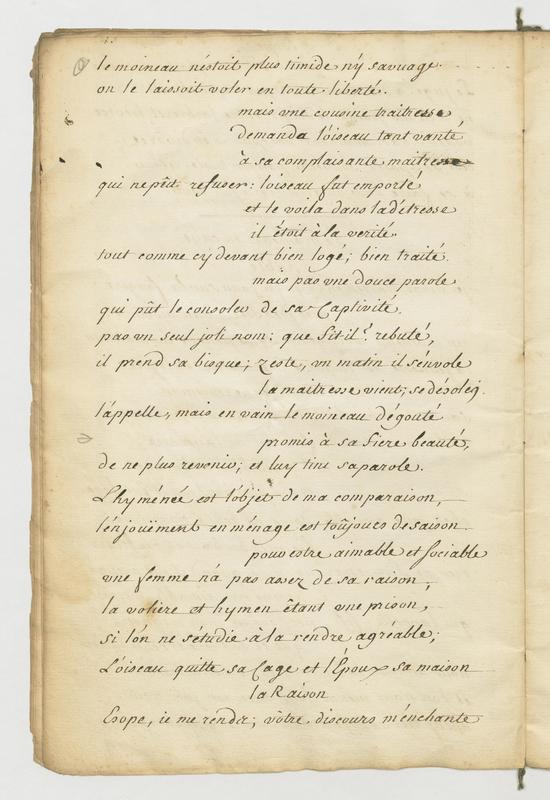 le moineau n'éstoit plus timide n'y sauuage.
on le laissoit voler en toute liberté.
mais vne cousine traitresse,
demanda l'oiseau tant vanté
à sa complaisante maitresse
qui ne pût refuser: l'oiseau fut emporté
et le voila dans la détresse
il étoit à la verité,
tout comme cy devant bien logé; bien traité.
mais pas vne douce parole
qui pût le consoler de sa Captivité.
pas vn seul joli nom: que fit il? rebuté,
il prend sa bisque; zeste, vn matin il s'énvole
la maitresse vient; se désole;
l'áppelle, mais en vain le moineau dégouté
promis à sa fiere beauté,
de ne plus revenir; et luy tint sa parole.
L'hyménée est l'objet de ma comparaison,
l'énjoüement en ménage est toûjours de saison.
pour estre aimable et sociable
vne femme n'a pas assez de sa raison,
la volière et hymen étant vne prison,
si l'ón ne s'étudie à la rendre agréable;
L'oiseau quitte sa Cage et l'Époux sa maison
la Raison
Esope, ie me rends; vôtre discours m'énchante